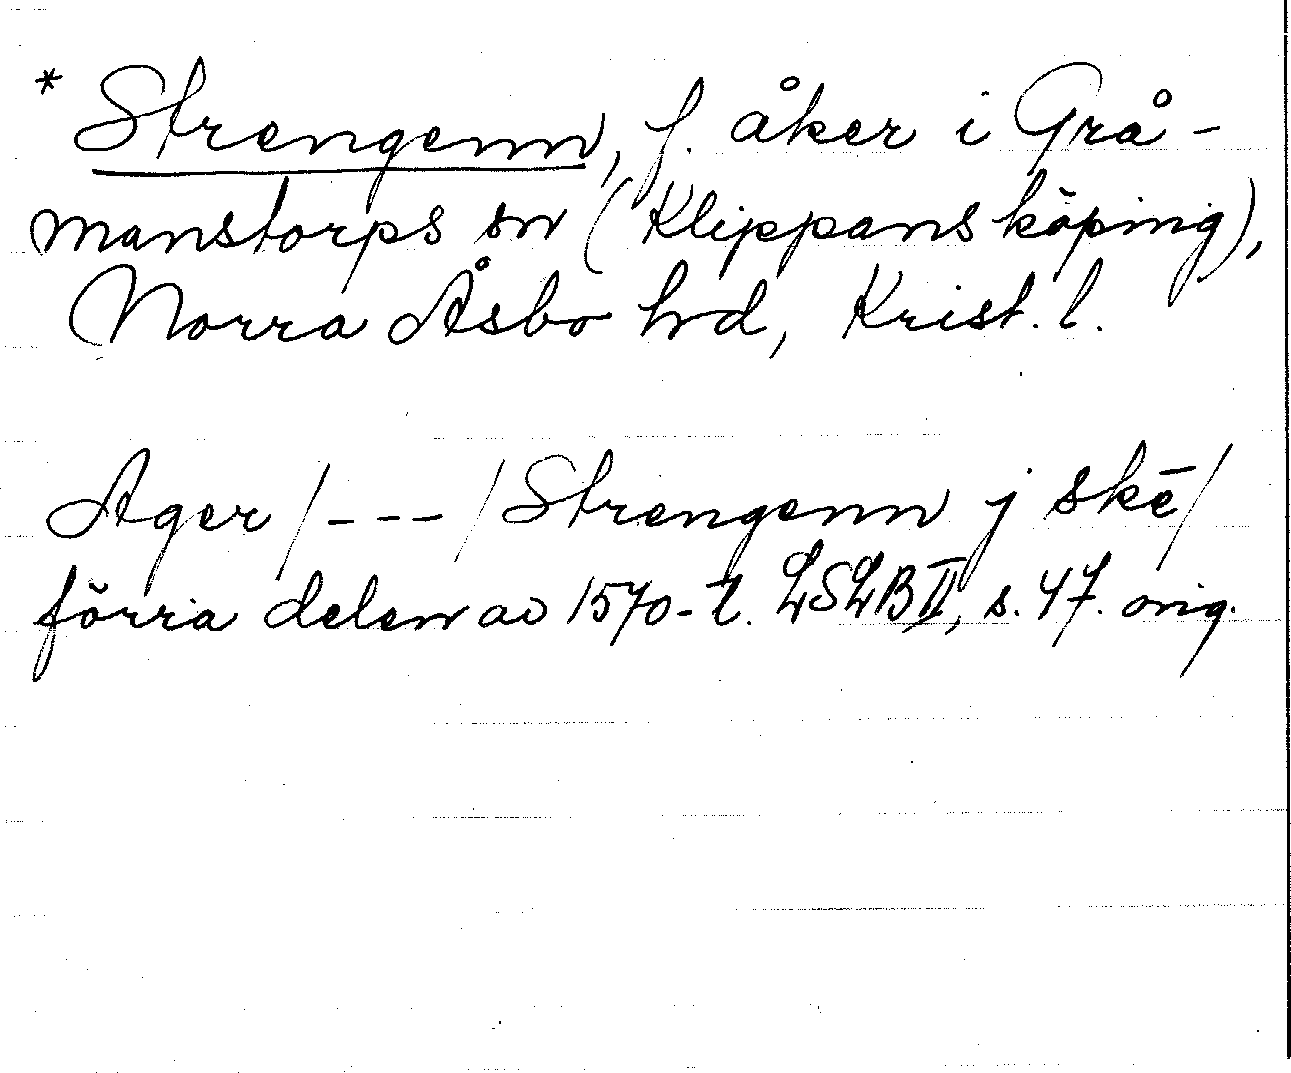 * Strengenn, f. åker i Grå-
manstorps sn (Klippans köping),
Norra Åsbo hrd, Krist. l.
Ager /---/ Strengenn j skē/
förra delen av 1570-t. LSLB II, s. 47. orig.